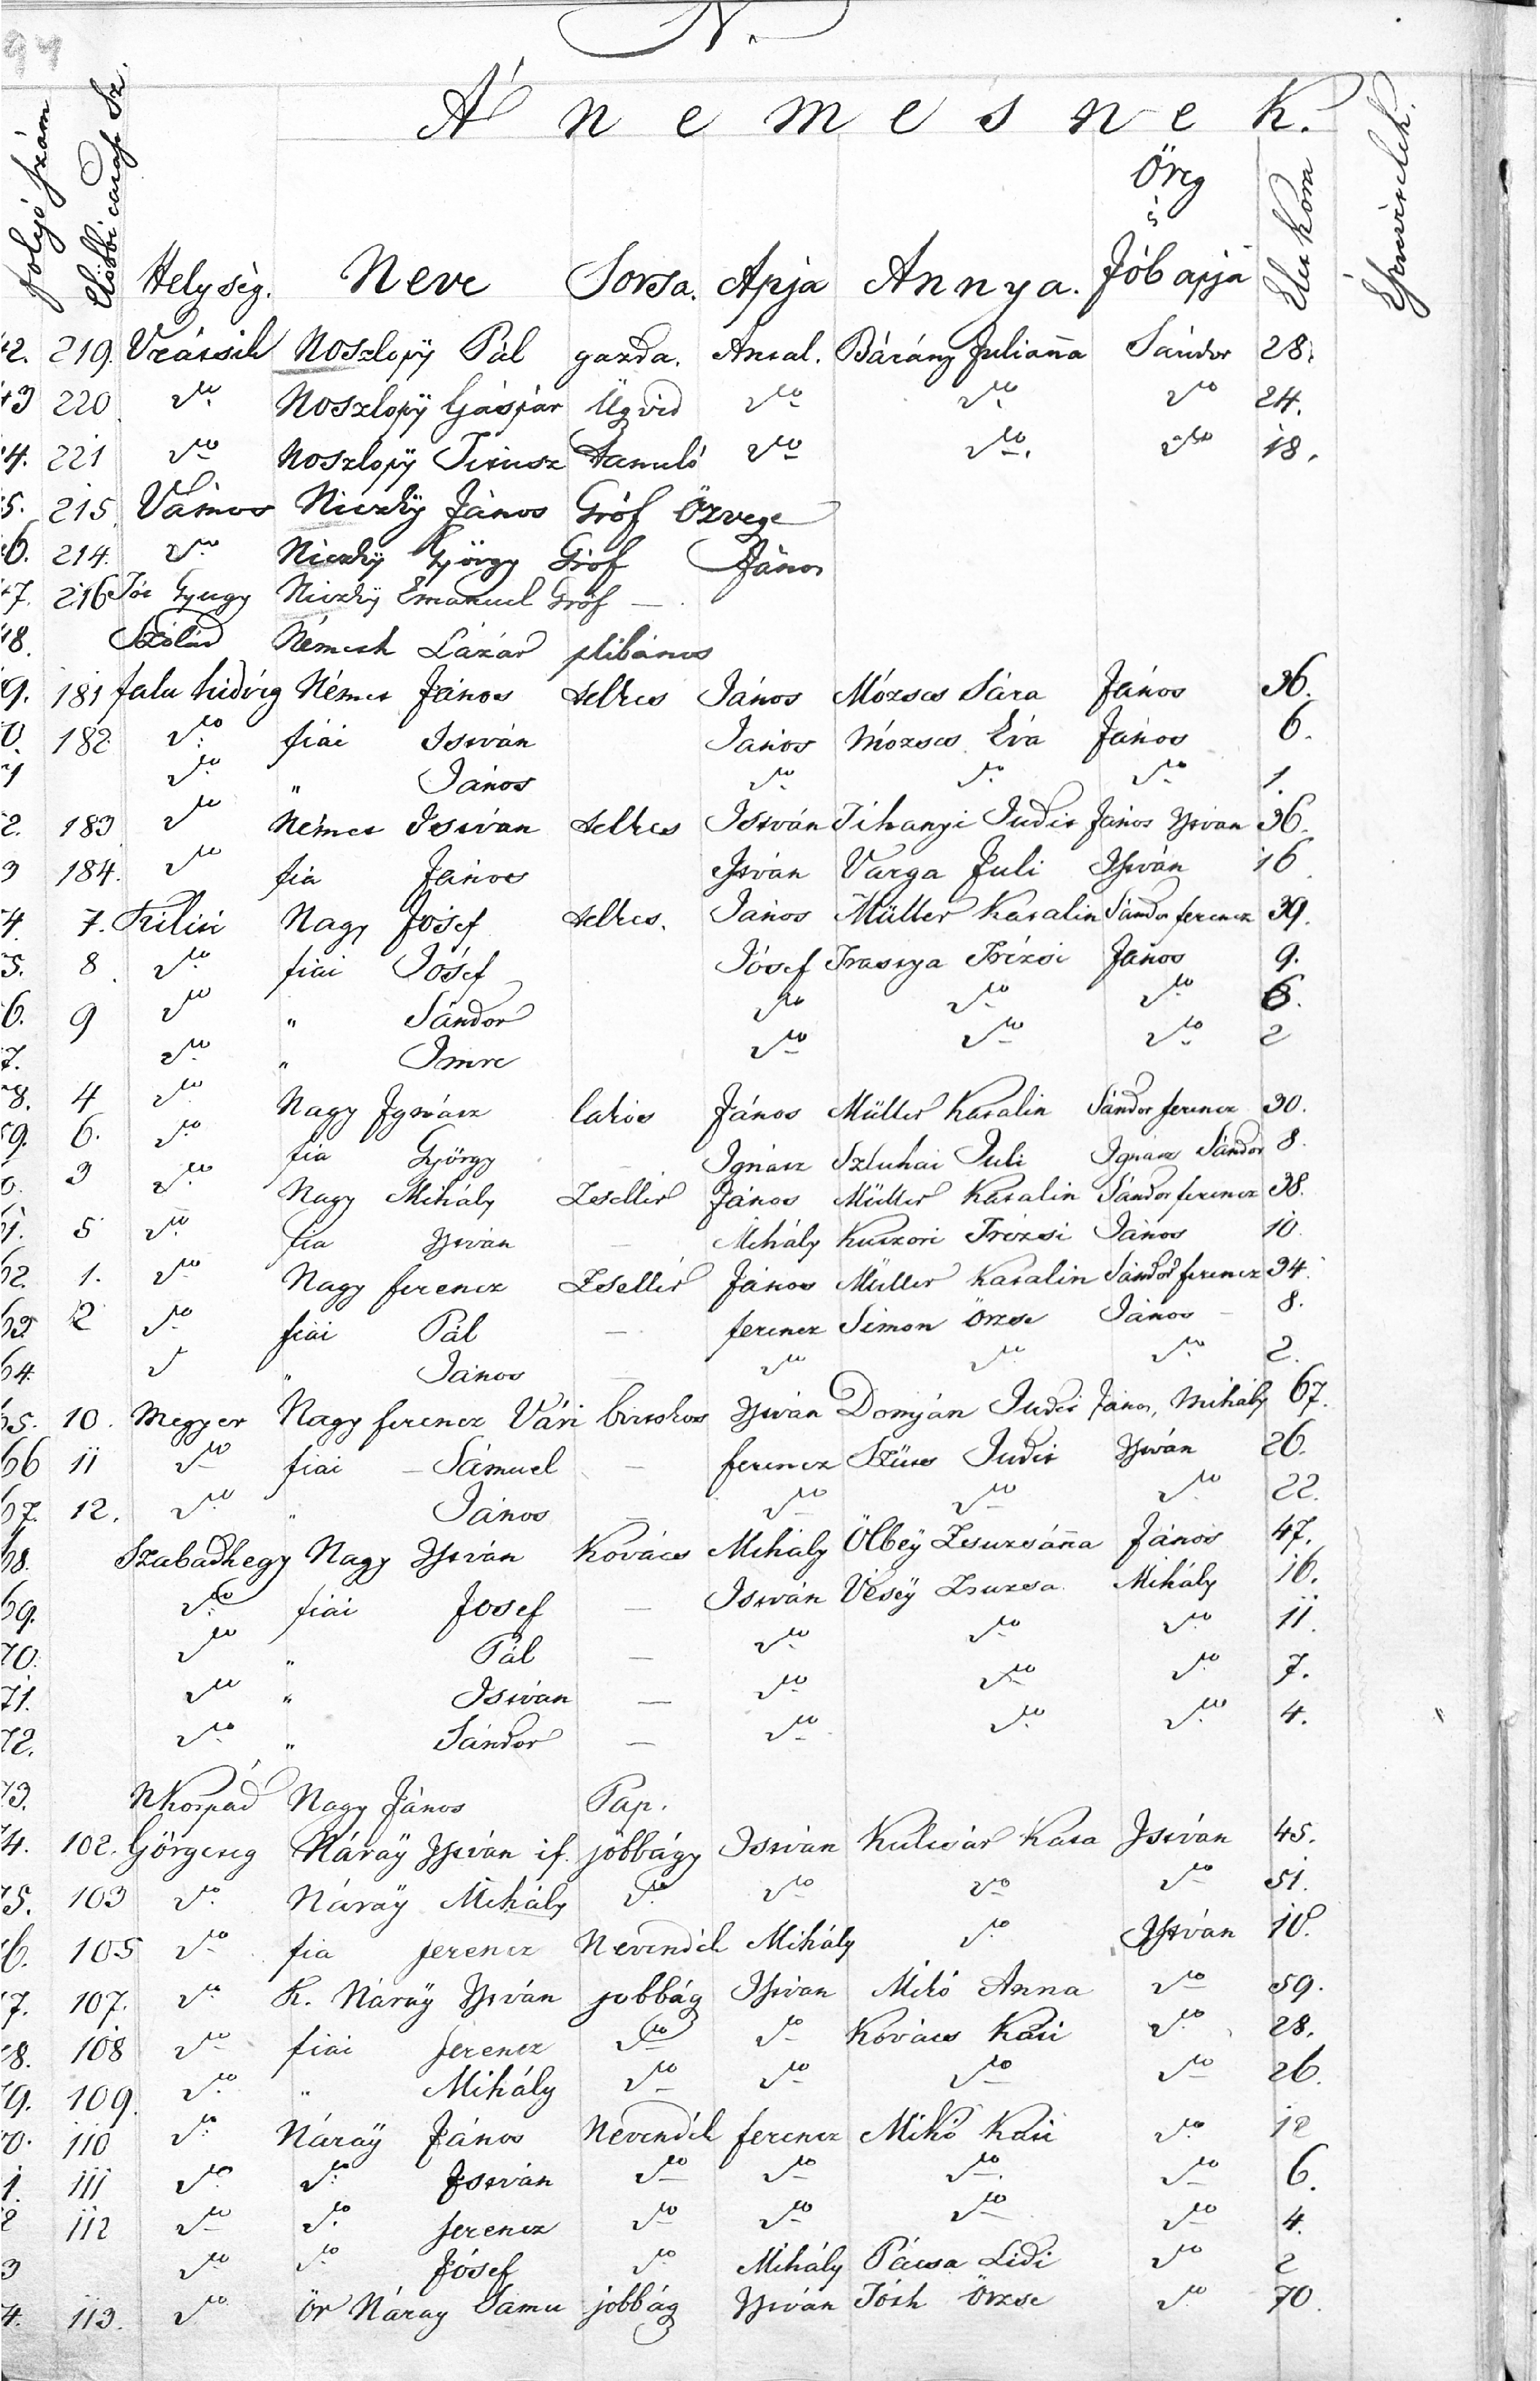 94
N.
A nemesnek.
folyó szám Előbbi Sz. Helység. Neve Sorsa. Apja Annya. Öreg s Jób apja Élet Kora
2. 219. Vrácsik Noszlopÿ Pál gazda. Antal. Bárány Julianna Sándor 28.
43 220 do Noszlopÿ Gáspár Ügvéd do do do 24.
4. 221 do Noszlopÿ Titusz tanuló do do do 18.
5. 215. Vámos Niczkÿ János Gróf Özvegye
6. 214. do Niczkÿ György Gróf János
47. 216 Tót Gyugy Niczkÿ Emanuel Gróf —
48. Szólád Németh Lázár plébános
9. 181 falu hidvég Német János telkes János Mózses Sára János 36.
0. 182 do fiái István János Mózses Éva János 6.
1 do " János do do do 1.
2. 183 do Német István telkes István Tihanyi Judit János István 36.
3 184. do fia János István Varga Juli István 16
4. 7. Kiliti Nagy Josef telkes. János Müller Katalin Sándor ferencz 39.
5. 8 do fiai Jósef Jósef Trézsi János 9.
6. 9 do " Sándor do do do 6.
7. do " Imre do do do 2
8. 4 do Nagy Ignácz lakos János Müller Katalin Sándor ferencz 30.
59. 6. do fia György — Ignácz Szluhai Juli Ignácz Sándor 8.
0. 3 do Nagy Mihály Zsellér János Müller Katalin Sándor ferencz 38.
1. 5 do fia István — Mihály Trézsi János 10
62. 1. do Nagy ferencz Zsellér János Müller Katalin Sándor ferencz 34.
63. 2 do fiái Pál — ferencz Simon Örzse János — 8.
64. do " János — do do do 2.
65. 10. Megyer Nagy ferencz Vári birtokos István Domján Judit János, Mihály 67.
66 11 do fiai — Sámuel — ferencz Szücs Judit István 26.
67. 12. do " János — do do do 22.
68. Szabadhegy Nagy István Kovács Mihály Ölbeÿ Zsuzsánna János 47.
69. do fiái Josef — István Veséÿ Zsuzsa Mihály 16.
70. do " Pál — do do do 11.
71. do " István — do do do 7.
72. do " Sándor — do do do 4. "
73. NKorpád Nagy János Pap.
74. 102. Görgeteg Náraÿ István if. jobbágy István Kulcsár Kata István 45.
75. 103 do Náraÿ Mihály do do do do 51.
6. 105 do fia ferencz Nevendék Mihály do István 10.
7. 107. do K. Náraÿ István jobbág István Mikó Anna do 59.
78. 108 do fiái ferencz do do Kovács Kati do 28.
79. 109. do " Mihály do do do do 26.
0. 110 do Náraÿ János Nevendék ferencz Mikó Kati do 12
1. 111 do do István do do do do 6.
2 112 do do ferencz do do do do 4.
3 do do Jósef do Mihály Pácsa Lidi do 2
4. 113. do ör Náray Samu jobbág István Tóth Örzse do 70.